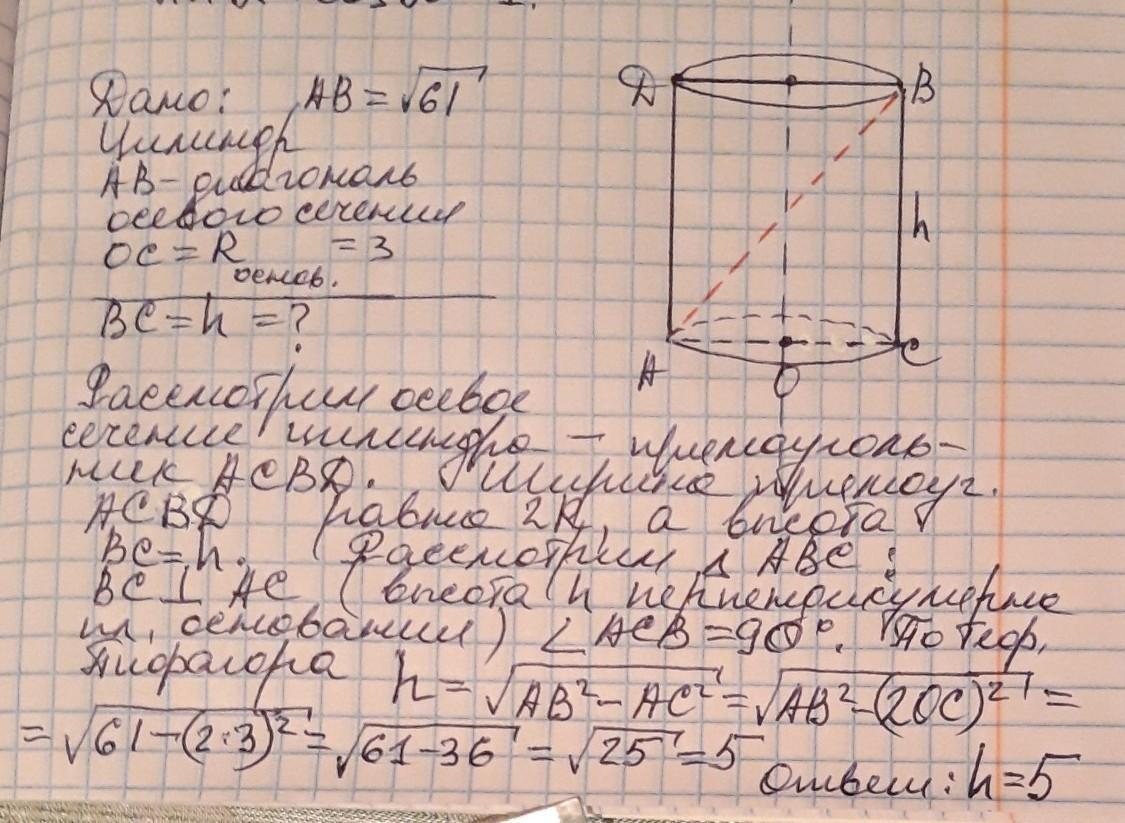 Дано: AB = √61
Цилиндр
AB - диагональ
осевого сечения
OC = R основ. = 3
BC = h = ?
D
B
h
A
O
C
Рассмотрим осевое
сечение цилиндра — прямоуголь-
ник ACBD. Ширина прямоуг.
ACBD равна 2R, а высота
BC = h. Рассмотрим △ ABC:
BC ⊥ AC (высота h перпендикулярна
пл. основания) ∠ ACB = 90°. По теор.
Пифагора h = √AB² - AC² = √AB² - (2OC)² =
= √61 - (2·3)² = √61 - 36 = √25 = 5
Ответ: h = 5